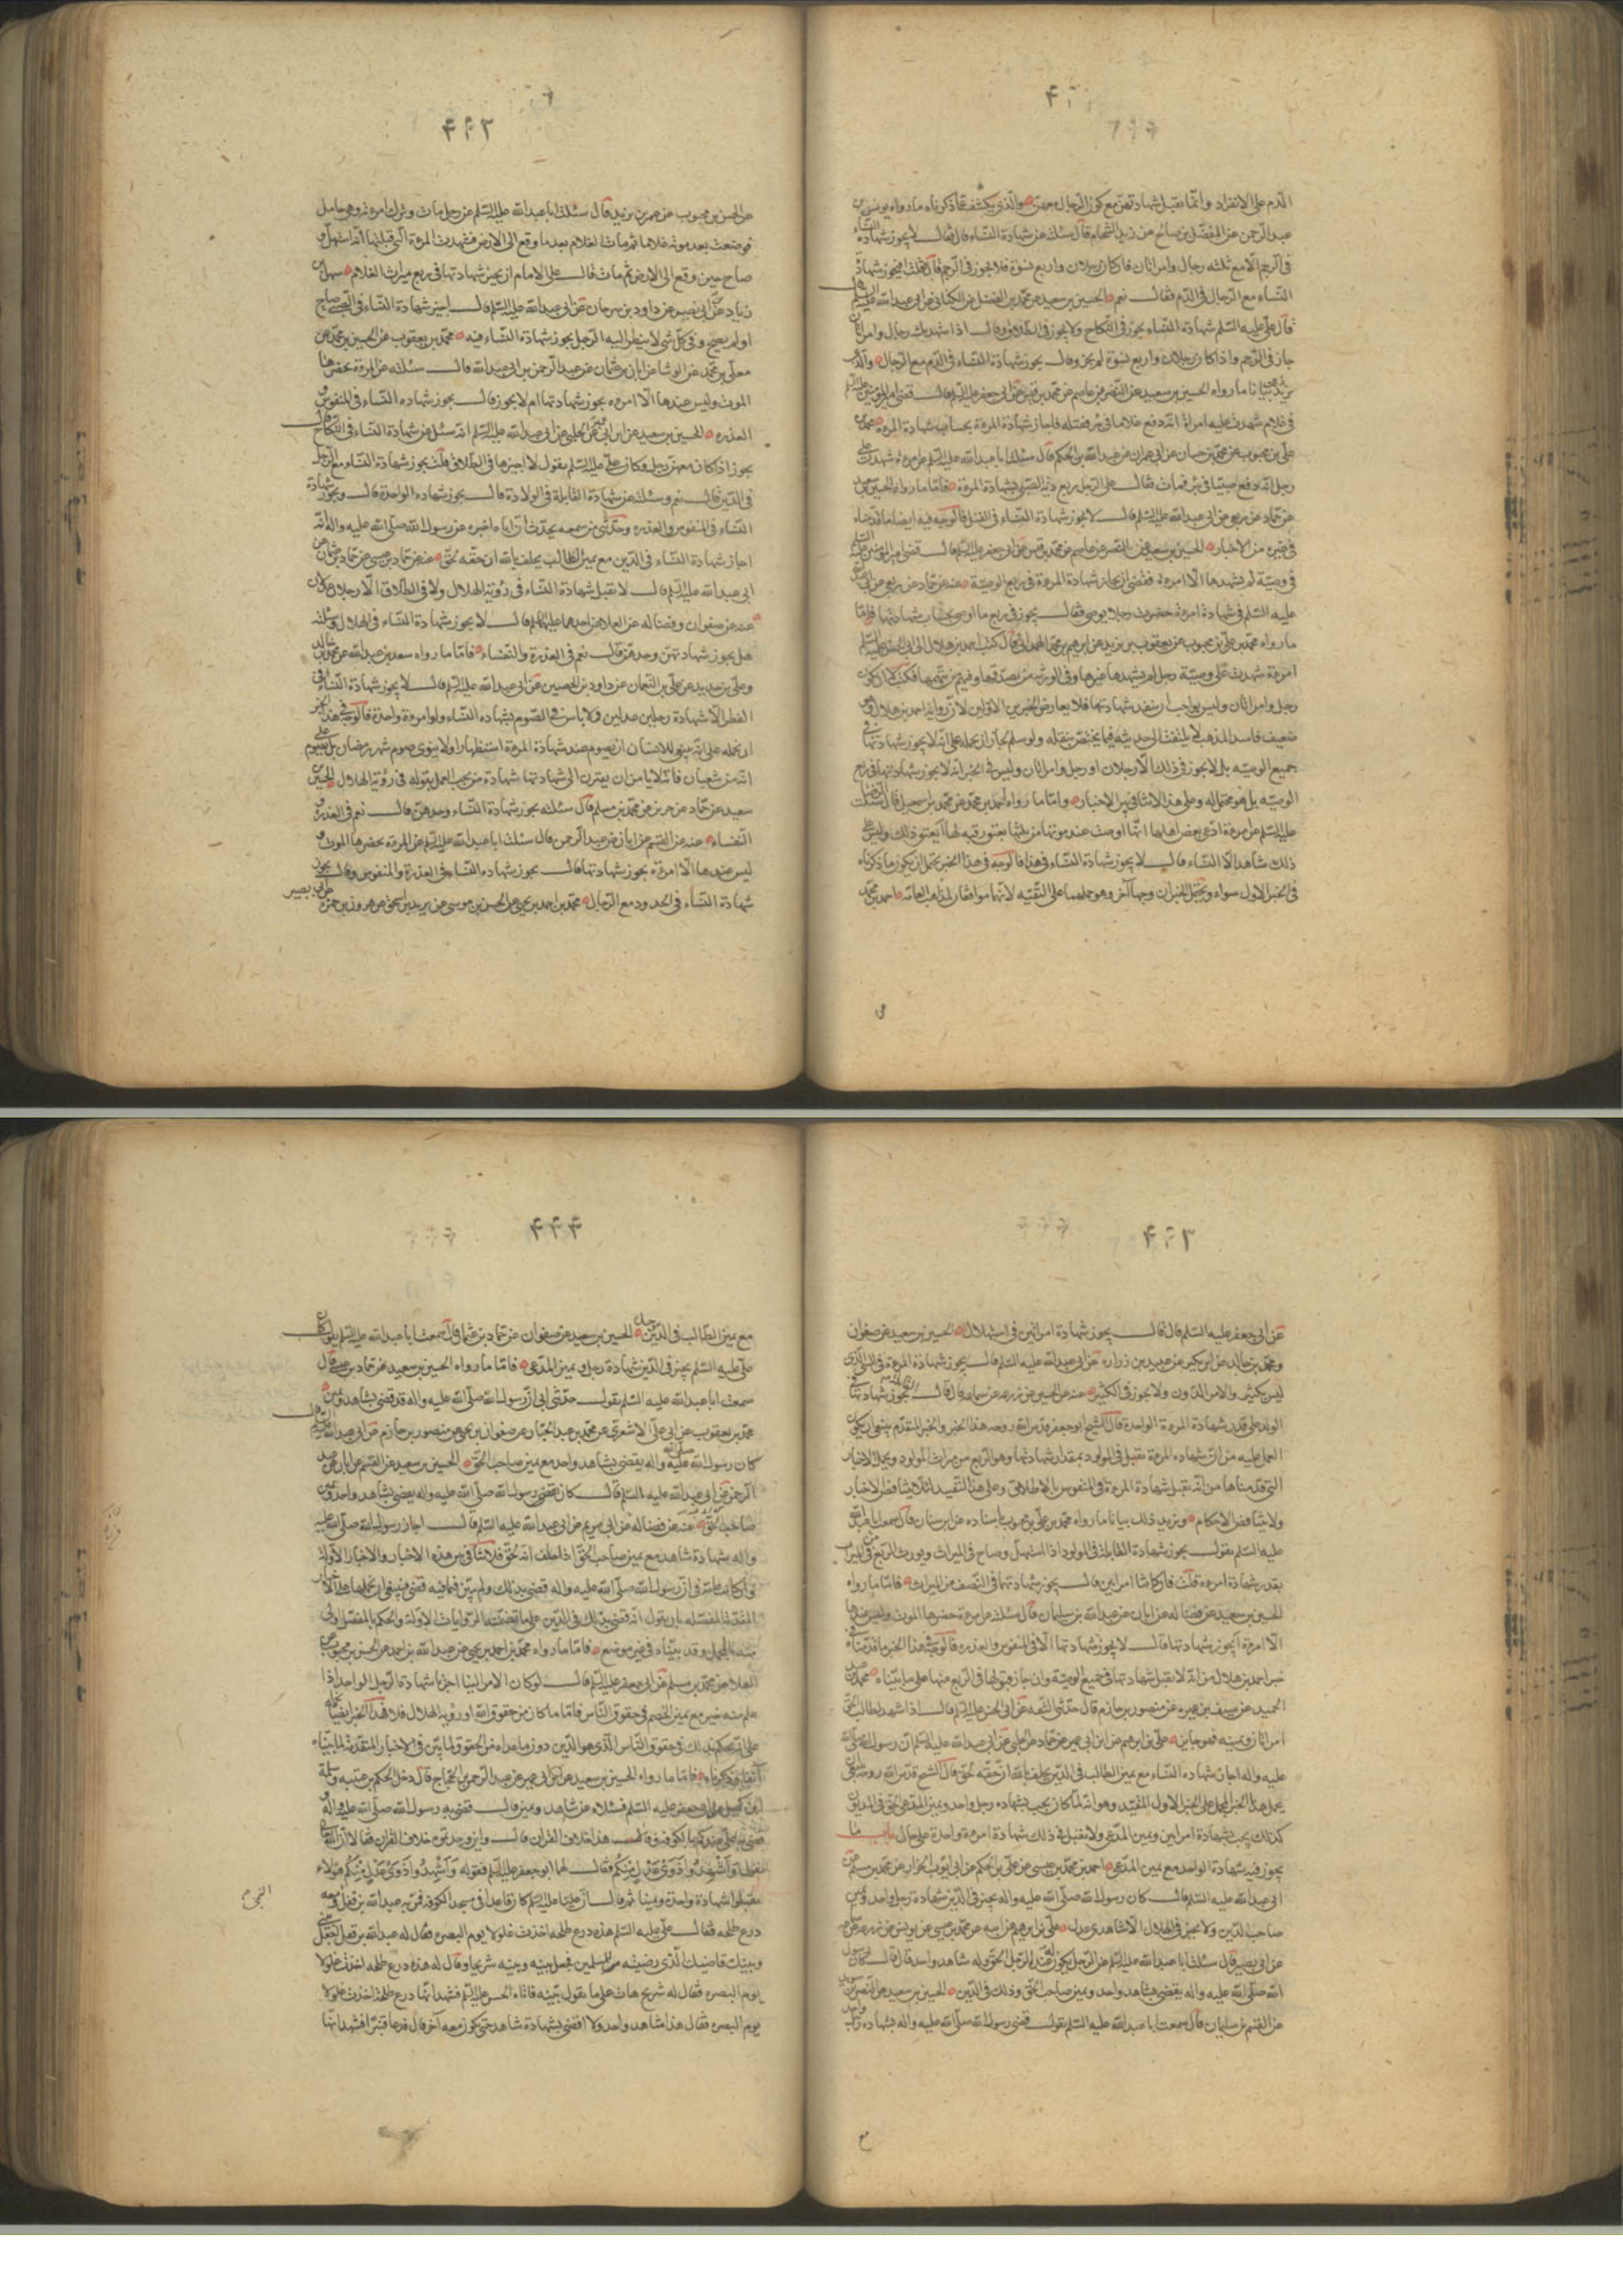 الدم على الانفراد وانما تقبل شهادتهن مع كون الرجال معهن والذى يكشف عما ذكرناه ما رواه يونس بن
عبدالرحمن عن المفضل بن صالح عن زيد الشحام قال سئلته عن شهادة النساء قال فقال لا يجوز شهادة النساء
فى الرجم الا مع ثلثه رجال وامراتان فان كان رجلان واربع نسوة فلا يجوز فى الرجم قال فقلت افيجوز شهادة
النساء مع الرجال فى الدم فقال نعم الحسين بن سعيد عن محمد بن الفضيل عن الكنانى عن ابى عبدالله عليه السلم قال
قال على عليه السلم شهادة النساء يجوز فى النكاح ولا يجوز فى الطلاق وقال اذا شهد ثلثه رجال وامراتان
جاز فى الرجم واذا كان رجلان واربع نسوة لم يجز وقال يجوز شهادة النساء فى الدم مع الرجال والذى
يزيد بيانا ما رواه الحسين بن سعيد عن النضر عن عاصم عن محمد بن قيس عن ابى جعفر عليه السلم قال قضى امير المومنين عليه السلم
فى غلام شهدت عليه امراة انه دفع غلاما فى بئر فقتله فاجاز شهادة المرءة بحساب شهادة المرءة محمد بن
على بن محبوب عن محمد بن حسان عن ابى عمران عن عبدالله بن الحكم قال سئلت ابا عبدالله عليه السلم عن امرءة شهدت على
رجل انه دفع صبيا فى بئر فمات فقال على الرجل ربع دية الصبى بشهادة المرءة فاما ما رواه الحسين بن سعيد
عن حماد عن ربعى عن ابى عبدالله عليه السلم قال لا يجوز شهادة النساء فى القتل فالوجه فيه ايضا ما قدمناه
فى غيره من الاخبار الحسين بن سعيد عن النضر عن عاصم عن محمد بن قيس عن ابى جعفر عليه السلم قال قضى امير المومنين عليه السلم
فى وصية لم يشهدها الا امرءة فقضى ان يجاز شهادة المرءة فى ربع الوصية عنه عن حماد عن ربعى عن ابى عبدالله
عليه السلم فى شهادة امرءة حضرت رجلا يوصى فقال يجوز فى ربع ما اوصى بحساب شهادتها فاما
ما رواه محمد بن على بن محبوب عن يعقوب بن يزيد عن ابرهيم بن محمد الهمدانى قال كتب احمد بن هلال الى ابى الحسن عليه السلم
امرءة شهدت على وصية رجل لم يشهدها غيرها وفى الورثة من يصدقها وفيهم من يتهمها فكتب لا الا ان يكون
رجل وامراتان وليس بواجب ان ينفذ شهادتها فلا يعارض الخبرين الاولين لان راويه احمد بن هلال وهو
ضعيف فاسد المذهب لا يلتفت الى حديثه فيما يختص بنقله ولو سلم لجاز ان نحمله على انه لا يجوز شهادتها فى
جميع الوصيه بل لا يجوز فى ذلك الا رجلان او رجل وامراتان وليس فى الخبر انه لا يجوز شهادتها فى ربع
الوصيه بل هو محتمل له وعلى هذا لا تنافى بين الاخبار واما ما رواه احمد بن محمد عن محمد بن اسمعيل قال سئلت الرضا
عليه السلم عن امرءة ادعى بعض اهلها انها اوصت عند موتها من ثلثها بعتق رقبه لها ايعتق ذلك وليس على
ذلك شاهد الا النساء قال لا يجوز شهادة النساء فى هذا فالوجه فى هذا الخبر يحتمل ان يكون ما ذكرناه
فى الخبر الاول سواء ويحتمل الخبران وجها آخر وهو حملهما على التقيه لانهما موافقان لمذاهب العامه احمد بن محمد
٤٤٢
عن الحسن بن محبوب عن عمر بن يزيد قال سئلت ابا عبدالله عليه السلم عن رجل مات وترك امرءته وهى حامل
فوضعت بعد موته غلاما ثم مات الغلام بعد ما وقع الى الارض فشهدت المرءة التى قبلتها انه استهل و
صاح حين وقع الى الارض ثم مات قال على الامام ان يجيز شهادتها فى ربع ميراث الغلام سهل بن
زياد عن ابن ابى نصر عن داود بن سرحان عن ابى عبدالله عليه السلم قال اجيز شهادة النساء فى الصبى صاح
او لم يصح وفى كل شىء لا ينظر اليه الرجل يجوز شهادة النساء فيه محمد بن يعقوب عن الحسين بن محمد عن
معلى بن محمد عن الوشا عن ابان بن عثمان عن عبدالرحمن بن ابى عبدالله قال سئلته عن المرءة يحضرها
الموت وليس عندها الا امرءه يجوز شهادتها ام لا يجوز قال يجوز شهاده النساء فى المنفوس و
العذره الحسين بن سعيد عن ابن ابى عمير عن الحلبى عن ابى عبدالله عليه السلم انه سئل عن شهادة النساء فى النكاح قال
يجوز اذا كان معهن رجل وكان على عليه السلم يقول لا اجيزها فى الطلاق قلت يجوز شهادة النساء مع الرجل
فى الدين قال نعم وسئلته عن شهادة القابلة فى الولادة قال يجوز شهاده الواحدة قال ويجوز شهادة
النساء فى المنفوس والعذره وحدثنى من سمعه يحدث ان اباه اخبره عن رسول الله صلى الله عليه واله انه
اجاز شهادة النساء فى الدين مع يمين الطالب يحلف بالله ان حقه لحق عنه عن حماد بن عيسى عن حماد بن عثمان عن
ابى عبدالله عليه السلم قال لا تقبل شهادة النساء فى رؤية الهلال ولا فى الطلاق الا رجلان عدلان
عنه عن صفوان وفضاله عن العلا عن احدهما عليهما السلم قال لا يجوز شهادة النساء فى الهلال وسئلته
هل يجوز شهادتهن وحدهن قال نعم فى العذرة والنفساء فاما ما رواه سعد بن عبدالله عن محمد بن خالد
وعلى بن حديد عن على بن النعمان عن داود بن الحصين عن ابى عبدالله عليه السلم قال لا يجوز شهادة النساء فى
الفطر الا شهادة رجلين عدلين ولا باس فى الصوم بشهاده النساء ولو امرءة واحدة فالوجه فى هذا الخبر
ان نحمله على انه ينبغى للانسان ان يصوم عند شهادة المرءة استظهارا ولا ينوى صوم شهر رمضان بل يصوم على
انه من شعبان فاما لا يامن ان يقترن الى شهادتها شهادة من يجب العمل بقوله فى رؤية الهلال الحسين بن
سعيد عن حماد عن حريز عن محمد بن مسلم قال سئلته يجوز شهادة النساء وحدهن قال نعم فى العذرة و
النفساء عنه عن القسم عن ابان عن عبدالرحمن قال سئلت ابا عبدالله عليه السلم عن المرءة يحضرها الموت و
ليس عندها الا امرءة يجوز شهادتها قال يجوز شهاده النساء فى العذرة والمنفوس وقال يجوز
شهادة النساء فى الحدود مع الرجال محمد بن احمد بن يحيى عن الحسن بن موسى عن يزيد بن اسحق عن هرون بن حمزه عن ابى بصير
٤٤٣
عن ابى جعفر عليه السلم قال قال يجوز شهادة امراتين فى استهلال الحسين بن سعيد عن صفوان
ومحمد بن خالد عن ابن بكير عن عبيد بن زراره عن ابى عبدالله عليه السلم قال يجوز شهادة المرءة فى الشىء الذى
ليس بكثير والامر الدون ولا يجوز فى الكثير عنه عن الحسين عن زرعه عن سماعه قال قال القابلة يجوز شهادتها فى
الولد على قدر شهادة المرءة الواحدة قال الشيخ ابو جعفر قدس الله روحه هذا الخبر والخبر المتقدم ينبغى ان يكون
العمل عليه من ان شهاده المرءة تقبل فى المولود بمقدار شهادتها وهو الربع من ميراث المولود ويحمل الاخبار
التى قدمناها من انه تقبل شهادة المرءة فى المنفوس بالاطلاق وعلى هذا التقييد لئلا يتناقض الاخبار
ولا يتناقض الاحكام ويزيد ذلك بيانا ما رواه محمد بن على بن محبوب باسناده عن ابن سنان قال سمعت ابا عبدالله
عليه السلم يقول يجوز شهادة القابلة فى المولود اذا استهل وصاح فى الميراث ويورث الربع من الميراث
بقدر شهادة امرءة قلت فان كانتا امراتين قال يجوز شهادتهما فى النصف من الميراث فاما ما رواه
الحسين بن سعيد عن فضاله عن ابان عن عبدالله بن سليمان قال سئلته عن امرءة حضرها الموت وليس عندها
الا امرءة ايجوز شهادتها قال لا يجوز شهادتها الا فى المنفوس والعذره فالوجه فى هذا الخبر ما قدمناه فى
خبر احمد بن هلال من انه لا تقبل شهادتها فى جميع الوصية وان جاز قبولها فى الربع منها على ما بيناه محمد بن عبد
الحميد عن سيف بن عميره عن منصور بن حازم قال حدثنى الثقه عن ابى الحسن عليه السلم قال اذا شهد لطالب الحق
امراتان ويمينه فهو جايز على بن ابرهيم عن ابن ابى عمير عن حماد عن الحلبى عن ابى عبدالله عليه السلم ان رسول الله صلى الله
عليه واله اجاز شهاده النساء مع يمين الطالب فى الدين يحلف بالله ان حقه لحق قال الشيخ قدس الله روحه ينبغى ان
يحمل هذا الخبر المجمل على الخبر الاول المقيد وهو انه لما كان يجب بشهاده رجل واحد ويمين المدعى الحق فى المديون
كذلك يجب بشهادة امراتين ويمين المدعى ولا تقبل فى ذلك شهادة امرءة واحدة على حال باب ما
يجوز فيه شهادة الواحد مع يمين المدعى احمد بن محمد بن عيسى عن على بن الحكم عن ابى ايوب الخزاز عن محمد بن مسلم عن
ابى عبدالله عليه السلم قال كان رسول الله صلى الله عليه واله يجيز فى الدين شهادة رجل واحد ويمين
صاحب الدين ولا يجيز فى الهلال الا شاهدى عدل على بن ابرهيم عن ابيه عن محمد بن عيسى عن يونس عن زرعه عن سماعه
عن ابى بصير قال سئلت ابا عبدالله عليه السلم عن الرجل يكون له عند الرجل الحق وله شاهد واحد قال قال كان رسول
الله صلى الله عليه واله يقضى بشاهد واحد ويمين صاحب الحق وذلك فى الدين الحسين بن سعيد عن النضر بن سويد
عن القسم بن سليمان قال سمعت ابا عبدالله عليه السلم يقول قضى رسول الله صلى الله عليه واله بشهاده رجل واحد
مع
٤٤٤
مع يمين الطالب فى الدين الحسين بن سعيد عن صفوان عن حماد بن عثمان قال سمعت ابا عبدالله عليه السلم يقول كان
على عليه السلم يجيز فى الدين شهادة رجل ويمين المدعى فاما ما رواه الحسين بن سعيد عن حماد بن عيسى قال
سمعت ابا عبدالله عليه السلم يقول حدثنى ابى ان رسول الله صلى الله عليه واله قد قضى بشاهد ويمين
محمد بن يعقوب عن ابى على الاشعرى عن محمد بن عبدالجبار عن صفوان بن يحيى عن منصور بن حازم عن ابى عبدالله عليه السلم قال
كان رسول الله صلى الله عليه واله يقضى بشاهد واحد مع يمين صاحب الحق الحسين بن سعيد عن القسم عن ابان عن عبد
الرحمن عن ابى عبدالله عليه السلم قال كان يقضى رسول الله صلى الله عليه واله يقضى بشاهد واحد ويمين
صاحب الحق عنه عن فضاله عن ابى مريم عن ابى عبدالله عليه السلم قال اجاز رسول الله صلى الله عليه
واله شهادة شاهد مع يمين صاحب الحق اذا حلف انه لحق فلا تنافى بين هذه الاخبار والاخبار الاوله
وان كانت عامة فى ان رسول الله صلى الله عليه واله قضى بذلك ولم يبين فيما فيه قضى فينبغى ان نحملها على الاخبار
المقدمة المفصله بان يقول انه قضى بذلك فى الدين على ما تضمنت الروايات الاوله والحكم بالمفصل اولى
منه بالمجمل وقد بيناه فى غير موضع فاما ما رواه محمد بن احمد بن يحيى عن عبدالله بن احمد عن الحسن بن محبوب عن
العلا عن محمد بن مسلم عن ابى جعفر عليه السلم قال لو كان الامر الينا اجزنا شهادة الرجل الواحد اذا
علم منه خير مع يمين الخصم فى حقوق الناس فاما ما كان من حقوق الله او رؤية الهلال فلا فهذا الخبر ايضا نحمله
على انه يحكم بذلك فى حقوق الناس الذى هو الدين دون ما عداه من الحقوق لما بين فى الاخبار المتقدمة لما بيناه
آنفا وذكرناه فاما ما رواه الحسين بن سعيد عن ابن ابى عمير عن عبدالرحمن بن الحجاج قال دخل الحكم بن عتيبه وسلمة
ابن كهيل على ابى جعفر عليه السلم فسئلاه عن شاهد ويمين قال قضى به رسول الله صلى الله عليه واله و
قضى به على عندكم بالكوفه فقالا هذا خلاف القران قال واين وجدتموه خلاف القران فقالا ان الله تعالى
يقول وَاَشْهِدُوا ذَوَىْ عَدْلٍ مِنْكُمْ فقال لهما ابو جعفر عليه السلم فقوله وَاَشْهِدُوا ذَوَىْ عَدْلٍ مِنْكُم هو الا
تقبلوا شهادة واحدة ويمينا ثم قال ان عليا عليه السلم كان قاعدا فى مسجد الكوفه فمر به عبدالله بن قفل ومعه
درع طلحه فقال على عليه السلم هذه درع طلحه اخذت غلولا يوم البصره فقال له عبدالله بن قفل اجعل بينى
وبينك قاضيك الذى رضيته للمسلمين فجعل بينه وبينه شريحا وقال له هذه درع طلحه اخذت غلولا
يوم البصره فقال له شريح هات على ما يقول بينه فاتاه الحسن عليه السلم فشهد انها درع طلحه اخذت غلولا
يوم البصره فقال هذا شاهد واحد ولا اقضى بشهادة شاهد حتى يكون معه آخر قال فدعا قنبرا فشهد انها